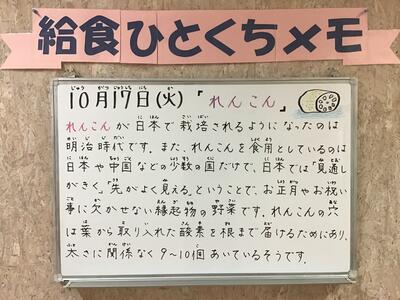 給食ひとくちメモ
10月17日(火)「れんこん」
れんこんが日本で栽培されるようになったのは
明治時代です。また、れんこんを食用としているのは
日本や中国などの少数の国だけで、日本では「見通し
がきく。「先がよく見える。ということで、お正月やお祝い
事に欠かせない縁起物の野菜です。れんこんの穴
は葉から取り入れた酸素を根まで届けるためにあり、
太さに関係なく9~10個あいているそうです。